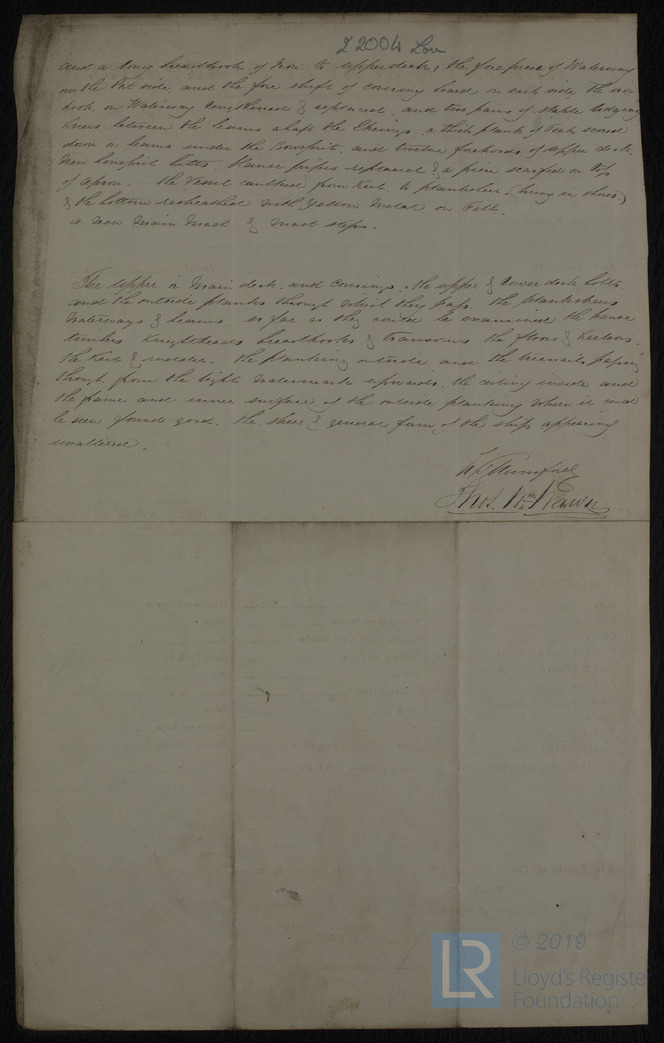 2 2004 Lon
and a long breasthook of Iron to upper deck, the fore piece of Waterway
on the Port side, and the fore shift of covering board on each side the
hook on Waterway lengthened & replaced, and two pairs of staple lodging
knees between the beams abaft the a thick plank of Teak scored
down on beams under the Bowsprit, and twelve forehoods of upper deck.
New bowsprit bitts. Hause pipes replaced & a piece scarfed on top
of apron. The Vessel caulked from keel to plansheer (being in )
& the bottom resheathed with yellow metal on Felt.
a New Main Mast & mast steps.
The Upper or Main deck and comings, the upper & lower deck bolts
and the outside planks through which they pass. The plansheers
waterways & beams so far as they could be examined, the hause
timbers Knightheads breasthooks & transoms the floors & keelsons.
the keel & rudder. the planking outside and the treenails passing
through from the light watermark upwards. the ceiling inside and
the frame and inner surface of the outside planking where it could
be seen found good. the sheer & general form of the ship appearing
unaltered.
Thos. Wm. Wawn
© 2019
LR
Lloyd's Register
Foundation